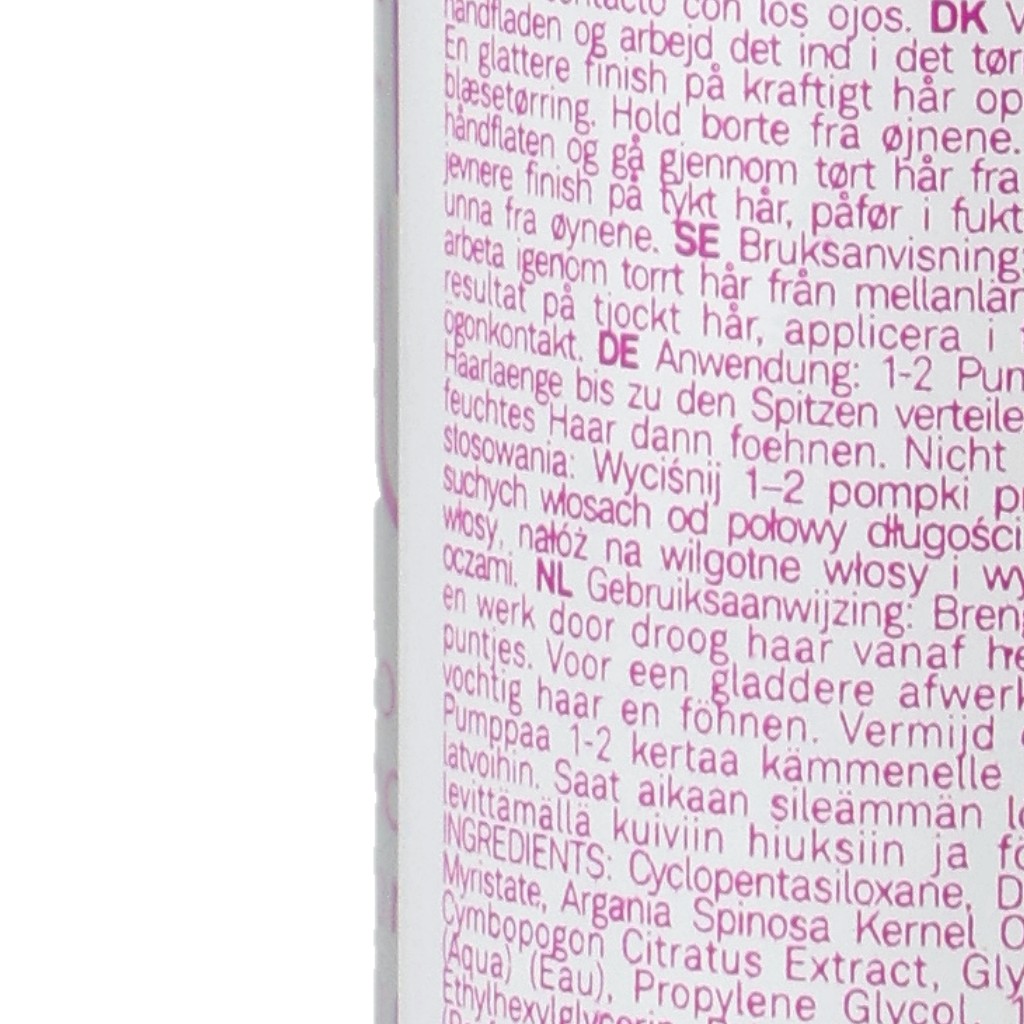 con los ojos. DK
håndfladen og arbejd det ind i det tør
En glattere finish på kraftigt hår op
blæsetørring. Hold borte fra øjnene.
håndflaten og gå gjennom tørt hår fra
jevnere finish på tykt hår, påfør i fukt
unna fra øynene. SE Bruksanvisning:
arbeta igenom torrt hår från mellanlän
resultat på tjockt hår, applicera i
ögonkontakt. DE Anwendung: 1-2 Pum
Haarlaenge bis zu den Spitzen verteile
feuchtes Haar dann foehnen. Nicht
stosowania: Wyciśnij 1–2 pompki pr
suchych włosach od połowy długości
włosy, nałóż na wilgotne włosy i wy
oczami. NL Gebruiksaanwijzing: Breng
en werk door droog haar vanaf he
puntjes. Voor een gladdere afwerk
vochtig haar en föhnen. Vermijd
Pumppaa 1-2 kertaa kämmenelle
latvoihin. Saat aikaan sileämmän lo
levittämällä kuiviin hiuksiin ja fö
INGREDIENTS: Cyclopentasiloxane, D
Myristate, Argania Spinosa Kernel O
Cymbopogon Citratus Extract, Gly
(Aqua) (Eau), Propylene Glycol, 1
Ethylhexylglycerin,